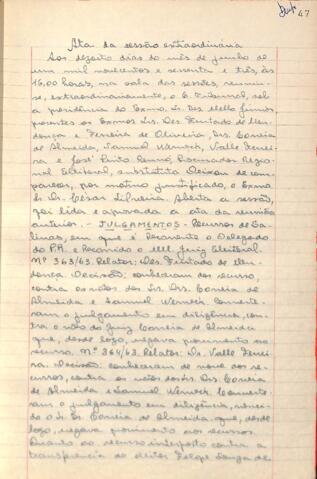 47
Ata da sessão extraordinária
Aos dezoito dias do mês de junho de
um mil novecentos e sessenta e três, às
16,00 horas, na sala das sessões, reuniu-
se, extraordinariamente, o E. Tribunal, sob
a presidência do Exmo. Sr. Des. Mello
presentes os Exmos. Srs. Des. Furtado de Men-
donça e Ferreira de Oliveira, Drs. Correia
de Almeida, Samuel Werneck, Valle Ferrei-
ra e José Pinto Renno, Procurador Regio-
nal Eleitoral, substituto. Deixou de com-
parecer, por motivo justificado, o Exmo.
Sr. Dr. Cesar Silveira. Aberta a sessão,
foi lida e aprovada a ata da reunião
anterior. - JULGAMENTOS - Recursos de
em que é Recorrente o Delegado
do P.R. e Recorrido o M. Juiz Eleitoral.
Nº 363/63. Relator: Des. Furtado de Men-
donça. Decisão: conheceram do recurso,
contra os votos dos Srs. Drs. Correia de
Almeida e Samuel Werneck. Converte-
ram o julgamento em diligência, con-
tra o voto do Juiz Correia de Almeida
que, desde logo, negava provimento ao
recurso. Nº 364/63. Relator: Dr. Valle Ferrei-
ra. Decisão: conheceram de nove dos re-
cursos, contra os votos dos Srs. Drs. Correia
de Almeida e Samuel Werneck. Converte-
ram o julgamento em diligência, venci-
do o Sr. Dr. Correia de Almeida que, desde
logo, negava provimento aos recursos.
Quanto ao recurso interposto contra a
transferência do eleitor Felipe Souza de